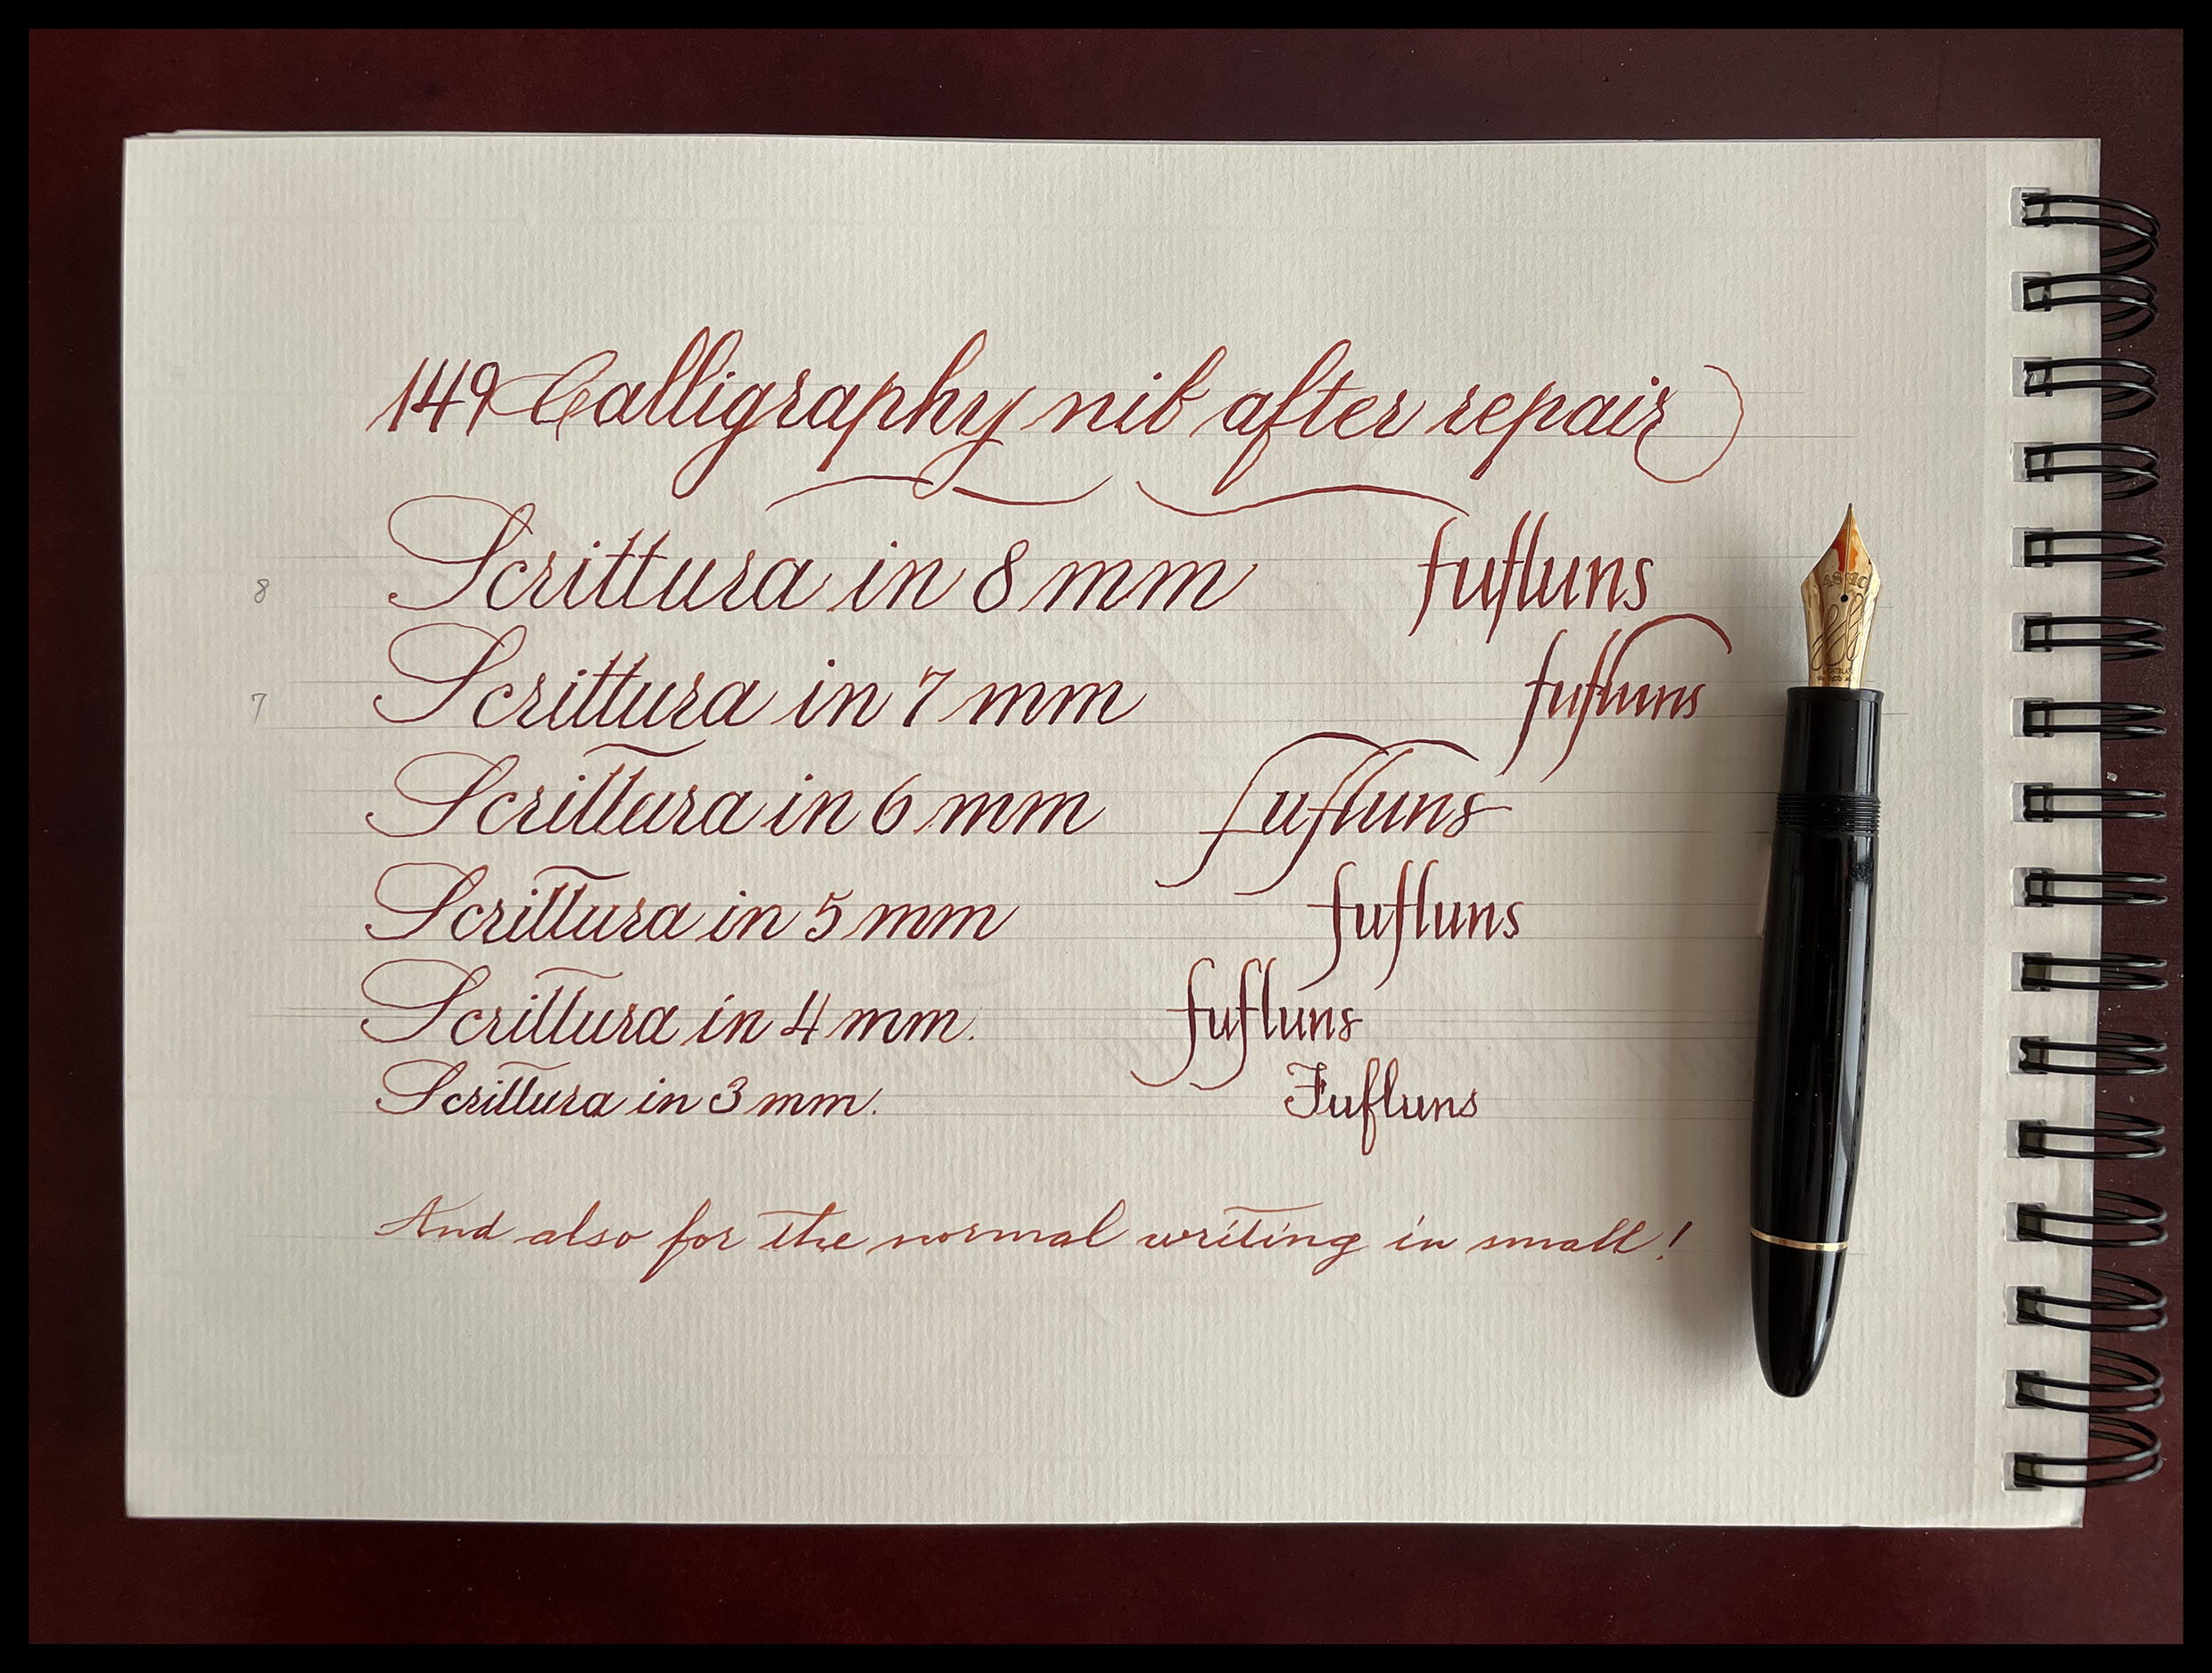 149 Calligraphy nib after repair
8 Scrittura in 8 mm fufluns
7 Scrittura in 7 mm fufluns
Scrittura in 6 mm fufluns
Scrittura in 5 mm fufluns
Scrittura in 4 mm. fufluns
Scrittura in 3 mm. Fufluns
And also for the normal writing in small!
4810